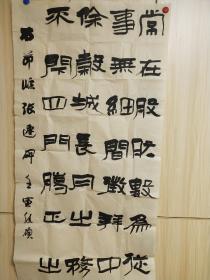 常在股肱數為從
事無細聞徵拜中
除穀城長月之務
不閉四門臘正之
臨張遷碑壬寅